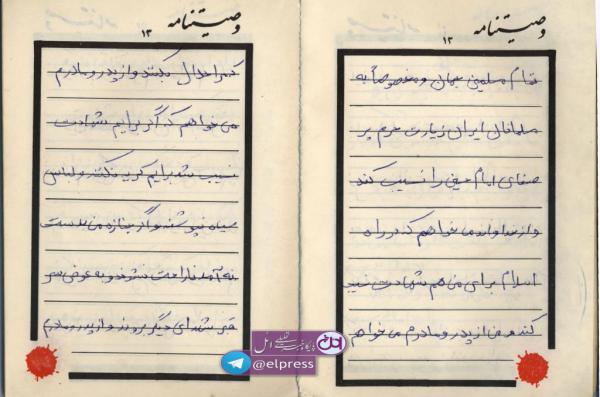 وصیتنامه
۱۳
تمام مسلمین جهان و مخصوصاً به
مسلمانان ایران زیارت حرم پر
صفای امام حسین را نسیب کند
و از خداوند می خواهم که در راه
اسلام برای من هم شهادت نسیب
کند و من از پدر و مادرم می خواهم
وصیتنامه
۱۳
که مرا حلال بکنند و از پدر و مادرم
می خواهم که اگر برایم شهادت
نسیب شد برایم گریه نکنند و لباس
سیاه نپوشند و اگر جنازه من بدست
نه آمد ناراحت نشوند و به عوض سر
قبر شهدای دیگر بروند و از پدر و مادرم
پایگاه خبری تحلیلی ائل
@elpress